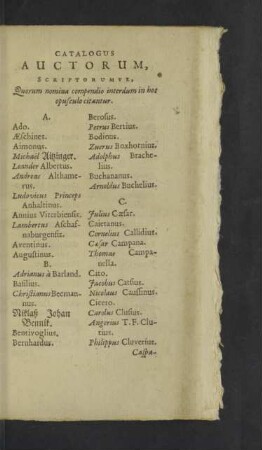 CATALOGUS
AUCTORUM,
SCRIPTORUMVE,
Quorum nomina compendio interdum in hoc
opusculo citantur.
A.
Ado.
Æschines.
Aimonus.
Michaël Aitzinger.
Leander Albertus.
Andreas Althame-
rus.
Ludovicus Princeps
Anhaltinus.
Annius Viterbiensis.
Lambertus Aschaf-
naburgensis.
Aventinus.
Augustinus.
B.
Adrianus à Barland.
Basilius.
Christianus Becman-
nus.
Niklaß Johan
Bennik.
Bentivoglius.
Bernhardus.
Berosus.
Petrus Bertius.
Bodinus.
Zuerus Boxhornius.
Adolphus Brache-
lius.
Buchananus.
Arnoldus Buchelius.
C.
Julius Cæsar.
Caietanus.
Cornelius Callidius.
Cæsar Campana.
Thomas Campa-
nella.
Cato.
Jacobus Catsius.
Nicolaus Caussinus.
Cicero.
Carolus Clusius.
Augerius T. F. Clu-
tius.
Philippus Cluverius.
Caspa-